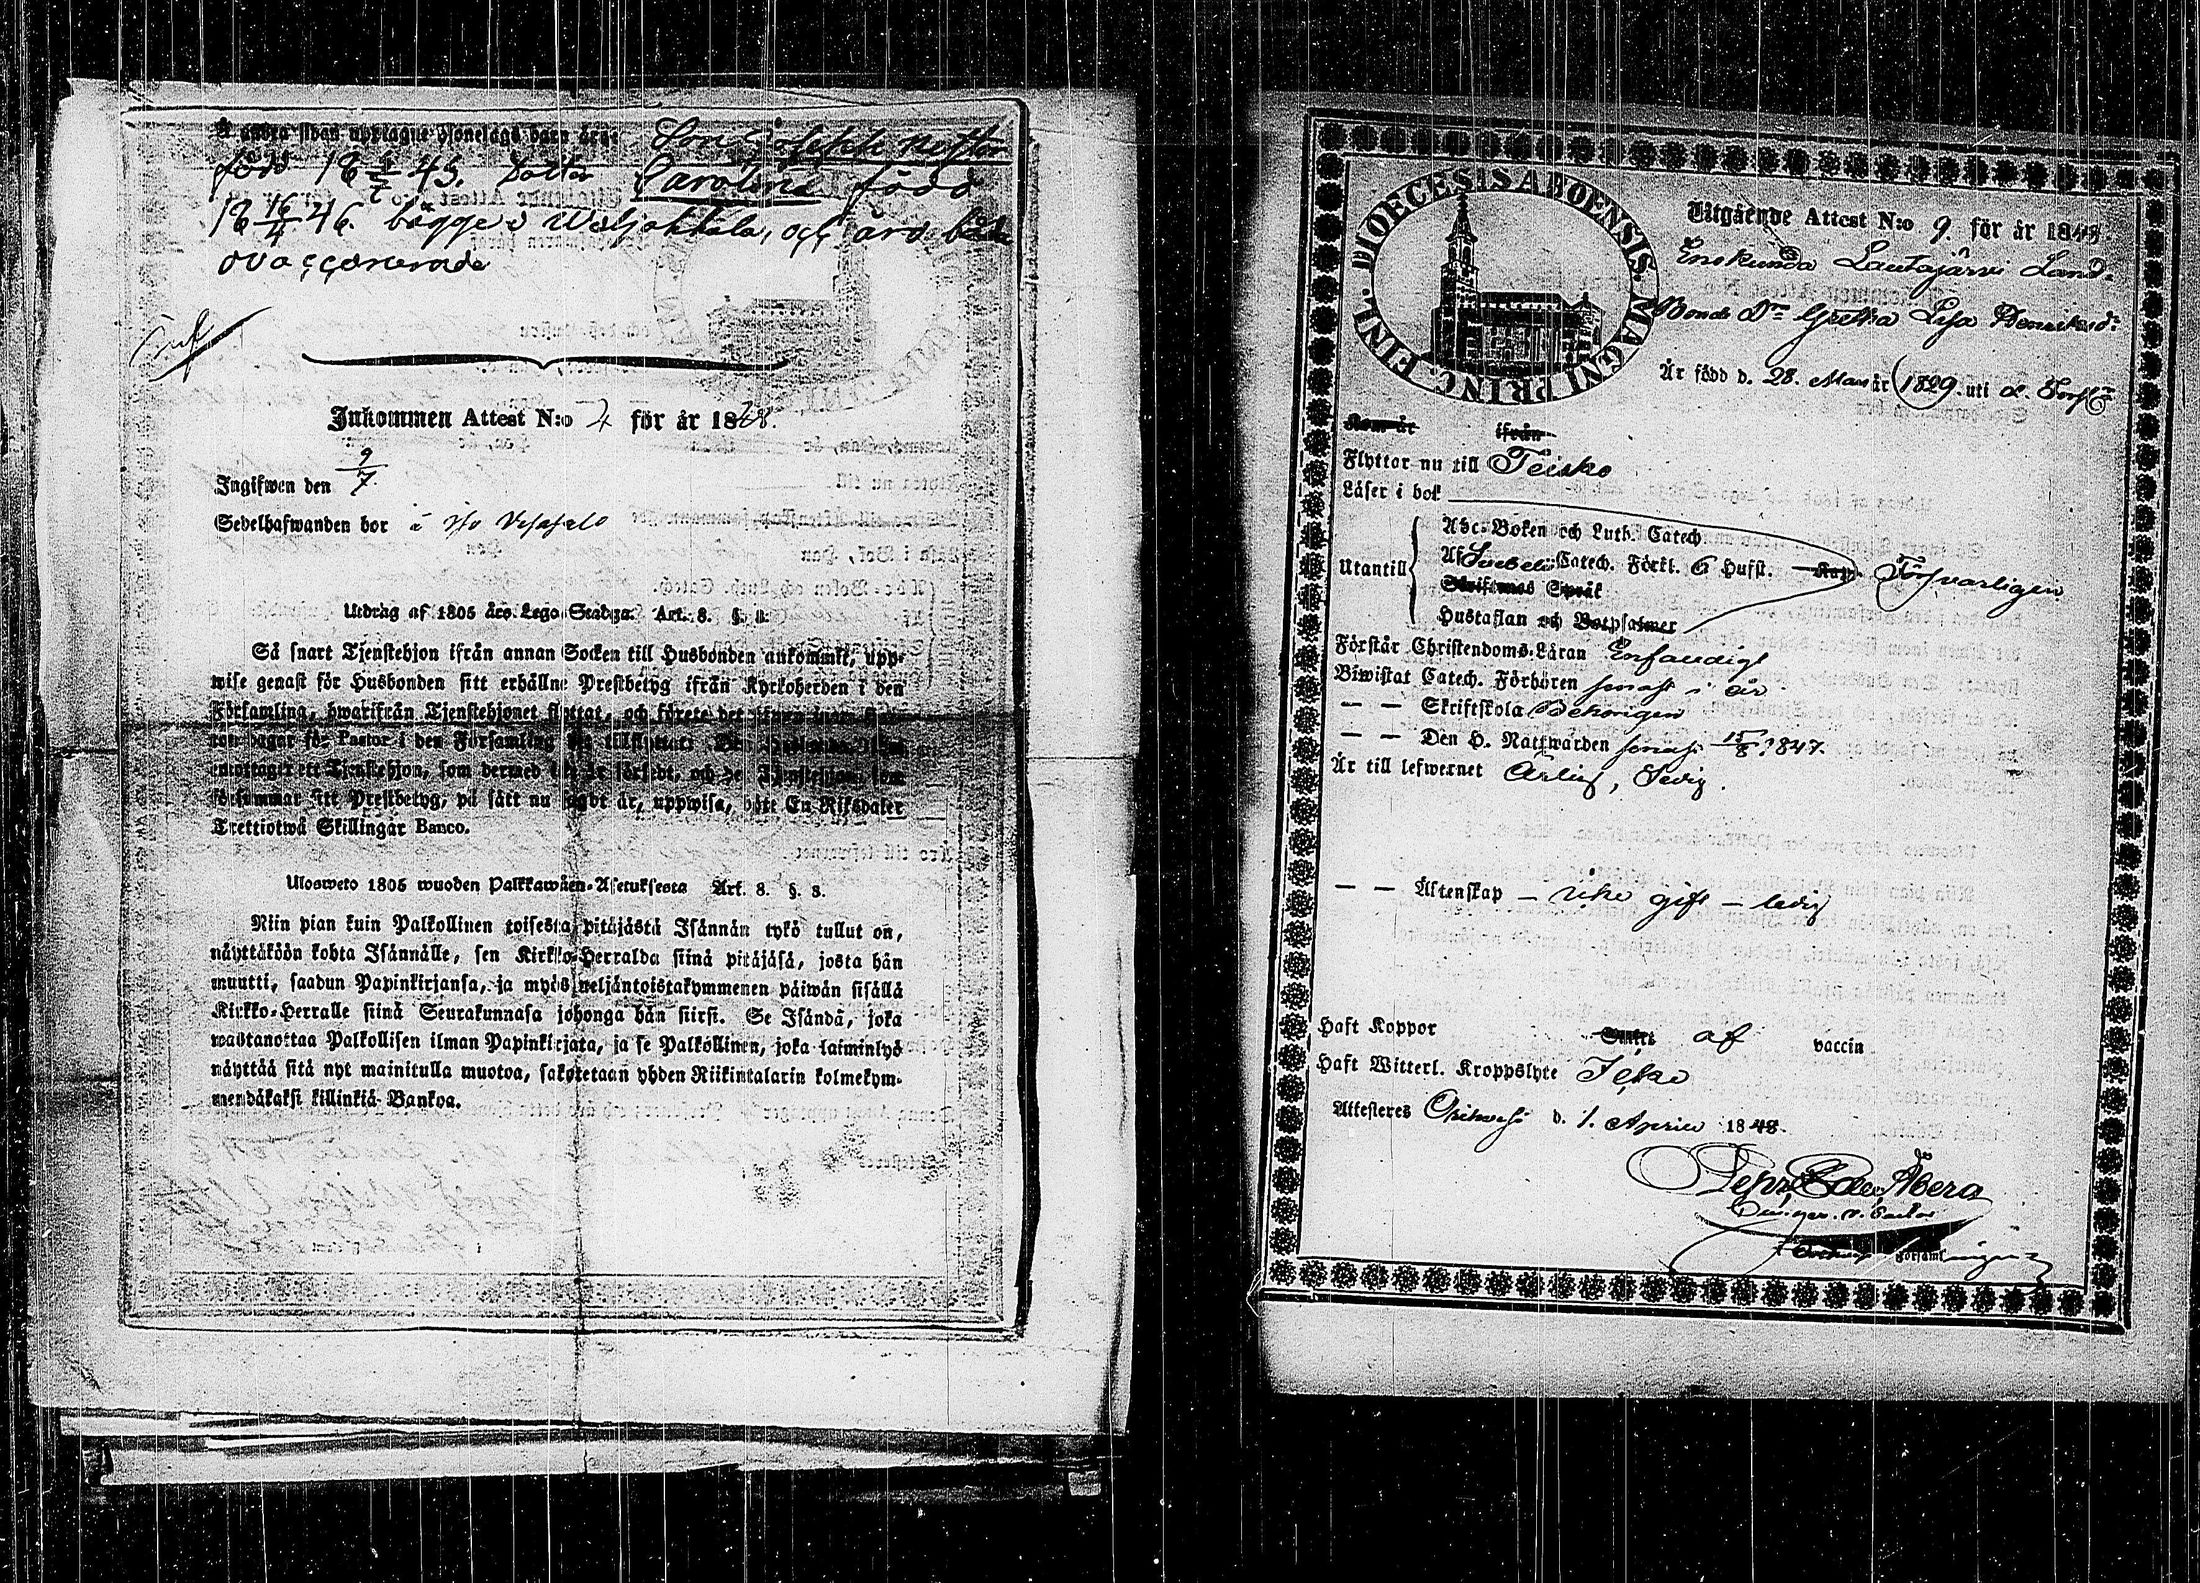 Å andra sidan upptagne Hjonelags barn äro: Son
född 18 1/7 45. Dotter Carolina född
18 16/4 46. bägge i Weljakkala, och äro både
ovaccinerade
Inkommen Attest N:o 2 för år 1848.
Ingifwen den 9/7
Sedelhafwanden bor å
Utdrag af 1805 års Lego-Stadga. Art. 8. §. 8.
Så snart Tjenstehjon ifrån annan Socken till Husbonden ankommit, upp-
wise genast för Husbonden sitt erhållne Prestbetyg ifrån Kyrkoherden i den
Församling, hwarifrån Tjenstehjonet flyttat, och förete det sedan inom fjor-
ton dagar för Pastor i den Församling
emottager ett Tjenstehjon, som dermed icke är försedt, och det Tjenstehjon, som
försummar sitt Prestbetyg, på sätt nu sagdt är, uppwisa, böte En Riksdaler
Trettiotwå Skillingar Banco.
Ulosweto 1805 wuoden Palkkawäen-Asetuksesta Art. 8. §. 8.
Niin pian kuin Palkollinen toisesta pitäjästä Isännän tykö tullut on,
näyttäköön kohta Isännälle, sen Kirkko-Herralda siinä pitäjäsä, josta hän
muutti, saadun Papinkirjansa, ja myös neljäntoistakymmenen päiwän sisällä
Kirkko-Herralle siinä Seurakunnasa johonga hän siirsi. Se Isändä, joka
wastanottaa Palkollisen ilman Papinkirjata, ja se Palkollinen, joka laiminlyö
näyttää sitä nyt mainitulla muotoa, sakotetaan yhden Riikintalarin kolmekym-
mendäkaksi killinkiä Bankoa.
DIOECESIS ABOENSIS MAGNI PRINC. FINL.
Utgående Attest N:o 9. för år 1848
Enskunda Lautajärvi Land-
Bonde Dr Gretha Lisa Henriksdr
Är född d. 28. Mars år 1829. uti d. Förs:
Kom år ifrån
Flyttar nu till Teisko
Läser i bok
Utantill
Abc-Boken och Luth. Catech.
Af Svebelii Catech. Förkl. 6 Hufst. Kap. Försvarligen
Skriftenes Språk
Hustaflan och Botpsalmer
Förstår Christendoms-Läran Enfaldigt
Biwistat Catech. Förhören senast i år
— — Skriftskola Behörigen
— — Den H. Nattwarden senast 15/8 1847.
Är till lefwernet Ärlig, Sedig.
— — Äktenskap – icke gift – ledig
Haft Koppor Smitt af vaccin
Haft Witterl. Kroppslyte Icke
Attesteras Orihvesi d. 1. April 1848.
Åberg
v. Pastor
Församl